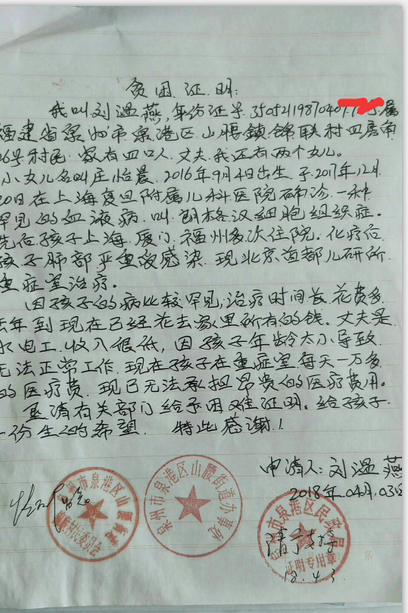 贫困证明:
我叫刘温燕.身份证号3505211987040 属
福建省泉州市泉港区山腰镇锦联村四房南
06号村民.家有四口人.丈夫.我还有两个女儿.
小女儿名叫庄怡晨.2016年9月4日出生于2017年12月
20日在上海复旦附属儿科医院确诊.一种
罕见的血液病.叫.朗格汉细胞组织症.
先后孩子上海.厦门.福州多次住院.化疗后
孩子肺部严重受感染.现北京首都儿研所
重症室治疗.
因孩子的病比较罕见,治疗时间长,花费多
去年到现在已经花去家里所有的钱.丈夫是
水电工.收入很低,因孩子年龄太小导致
无法正常工作.现在孩子在重症室每天一万多
的医疗费.现已无法承担昂贵的医疗费用.
恳请有关部门给予困难证明.给孩子
一份生的希望. 特此感谢!
申请人:刘温燕
2018年04月.03日
泉州市泉港区山腰街道办事处
泉州市泉港区民政局
证明专用章
18.4.3